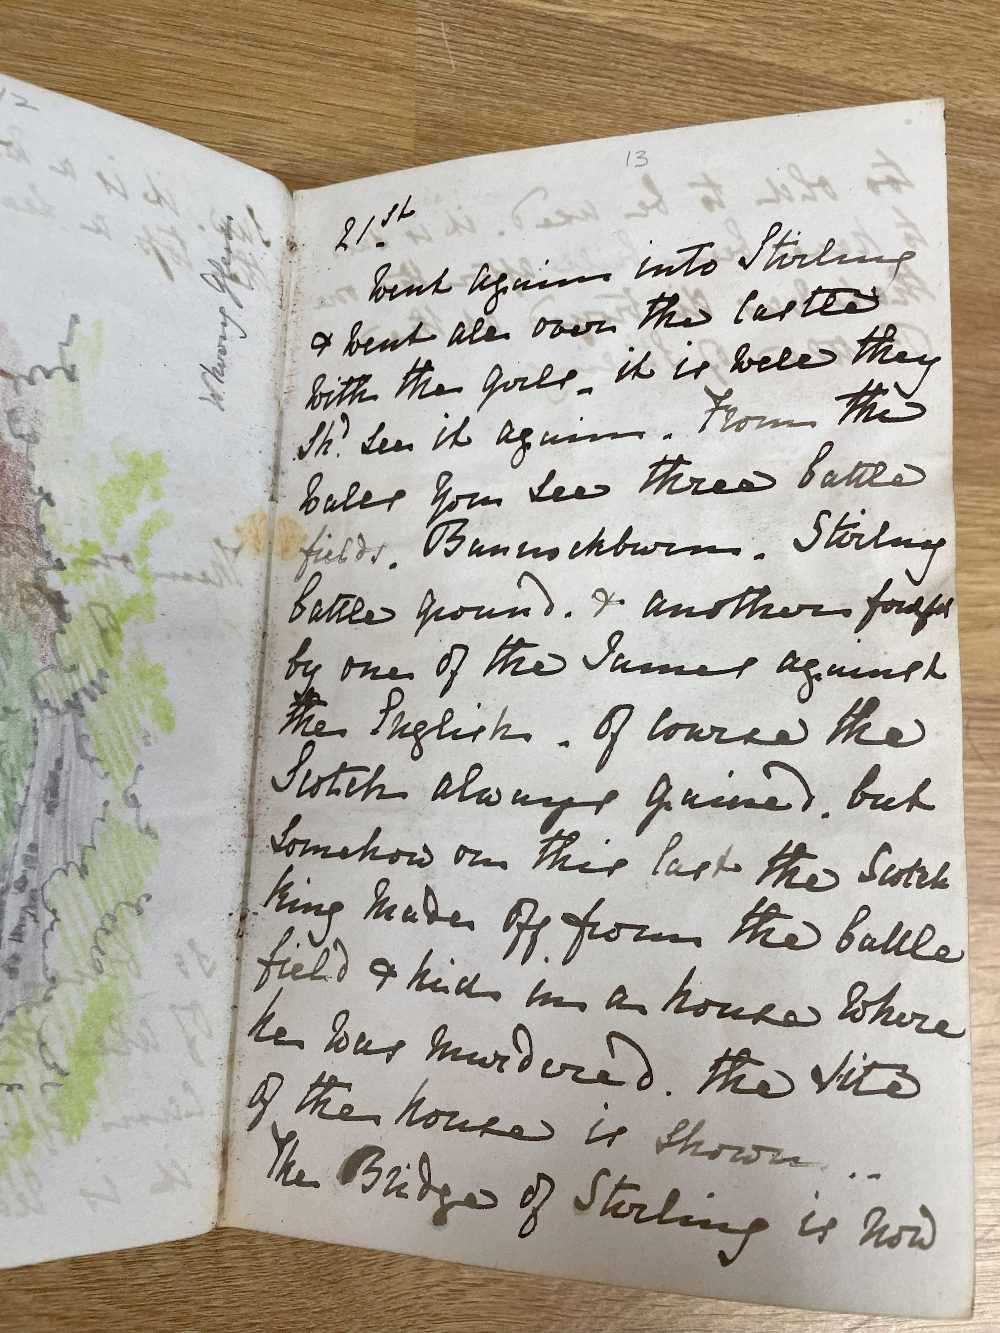 13
21st
Went again into Stirling
& went all over the Castle
with the girls. it is well they
shd. see it again. From the
walls you see three battle
fields. Bannockburn. Stirling
battle ground. & another
by one of the James against
the English. Of course the
Scotch always gained. but
somehow on this last the Scotch
King made off from the battle
field & hid in a house where
he was murdered. the site
of the house is shown...
The Bridge of Stirling is now
wrong